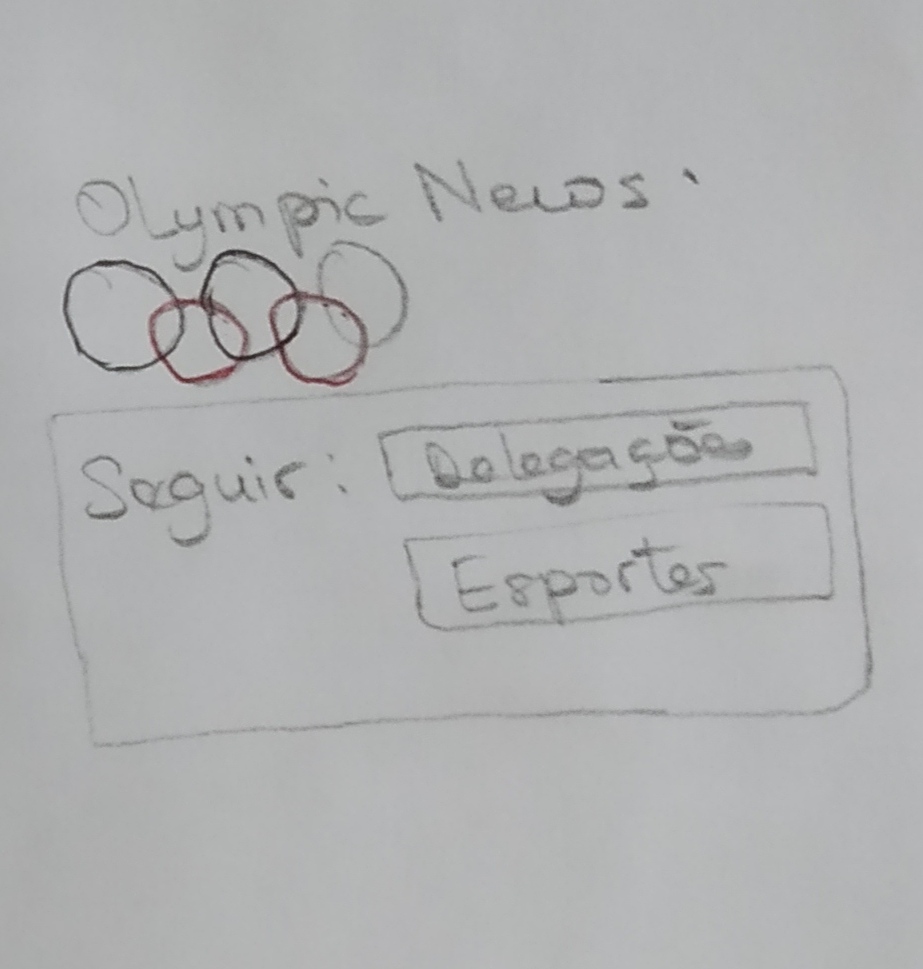 Olympic News.
Seguir: Delegação
Esportes